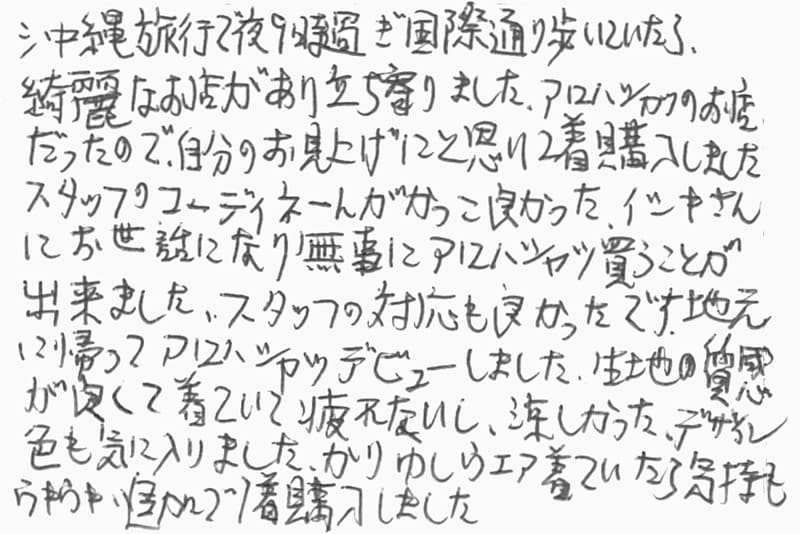 沖縄旅行で夜9時過ぎ国際通り歩いていたら、
綺麗なお店があり立ち寄りました、アロハシャツのお店
だったので、自分のお見上げにと思い2着購入しました
スタッフのコーディネートがかっこ良かった、イシキさん
にお世話になり無事にアロハシャツ買うことが
出来ました、スタッフの対応も良かったです、地元
に帰ってアロハシャツデビューしました、生地の質感
が良くて着ていて疲れないし、涼しかった、デザイン
色も気に入りました、かりゆしウエア着ていたら気持も
うきうき 1着購入しました